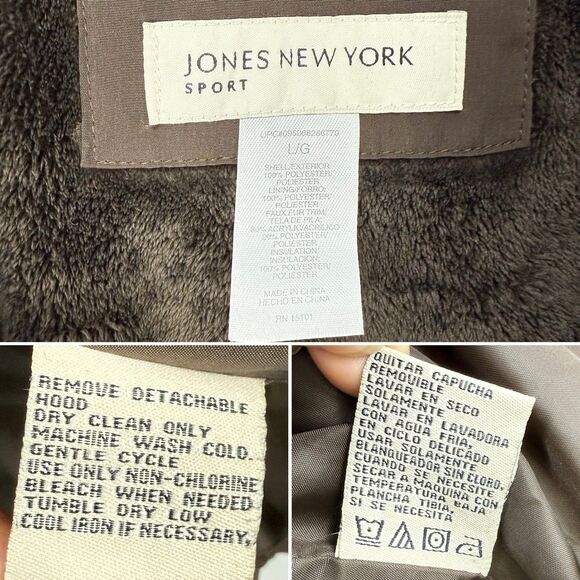 JONES NEW YORK
SPORT
UPC#095068266770
L/G
SHELL/EXTERIOR:
100% POLYESTER/
POLIESTER
LINING/FORRO:
100% POLYESTER/
POLIESTER
FAUX FUR TRIM/
TELA DE PILA:
80% ACRYLIC/ACRILICO
20% POLYESTER/
POLIESTER
INSULATION/
INSULACION:
100% POLYESTER/
POLIESTER
MADE IN CHINA
HECHO EN CHINA
RN 15101
REMOVE DETACHABLE
HOOD
DRY CLEAN ONLY
MACHINE WASH COLD.
GENTLE CYCLE
USE ONLY NON-CHLORINE
BLEACH WHEN NEEDED
TUMBLE DRY LOW
COOL IRON IF NECESSARY,
QUITAR CAPUCHA
REMOVIBLE
LAVAR EN SECO
SOLAMENTE
LAVAR EN LAVADORA
CON AGUA FRIA,
EN CICLO DELICADO
USAR SOLAMENTE
BLANQUEADOR SIN CLORO.
CUANDO SE NECESITE
SECAR A MAQUINA CON
TEMPERATURA BAJA
PLANCHA TIBIA,
SI SE NECESITA